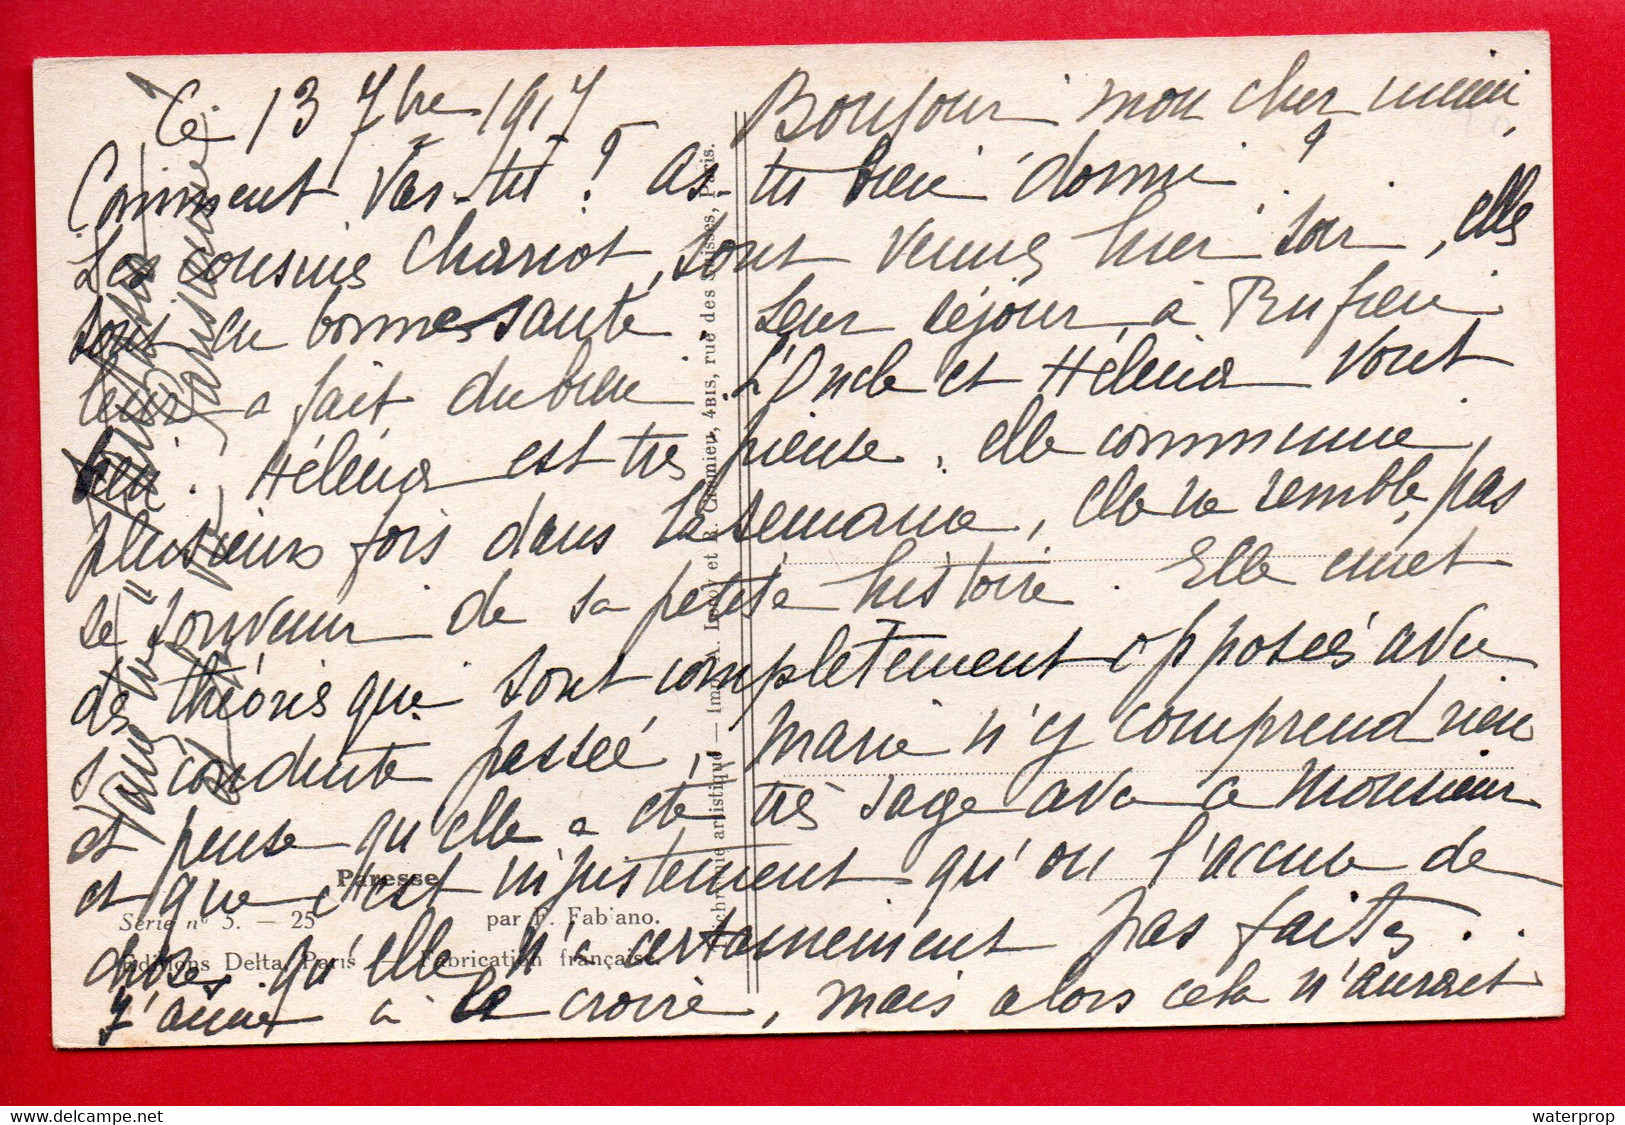 Le 13 7bre 1917
Bonjour mon cher mimi,
Comment vas-tu ? as-tu bien dormi ?
Les cousines Chariot, sont venues hier soir, elles
sont en bonne santé leur séjour à
leur a fait du bien. L'Oncle et Héléna vont
bien. Héléna est très pieuse, elle communie
plusieurs fois dans la semaine, elle ne semble pas
se souvenir de sa petite histoire. Elle émet
des théories qui sont complètement opposées avec
sa conduite passée, Marie n'y comprend rien
et pense qu'elle a été très sage avec ce Monsieur
et que c'est injustement qu'on l'accuse de
choses qu'elle n'a certainement pas faites..
J'aime à le croire, mais alors cela n'aurait
Paresse
Série nº 5. — 25 par F. Fabiano.
Éditions Delta, Paris — Fabrication française.
Technique artistique — Imp. A. et 4BIS, rue des Suisses, Paris.
waterprop